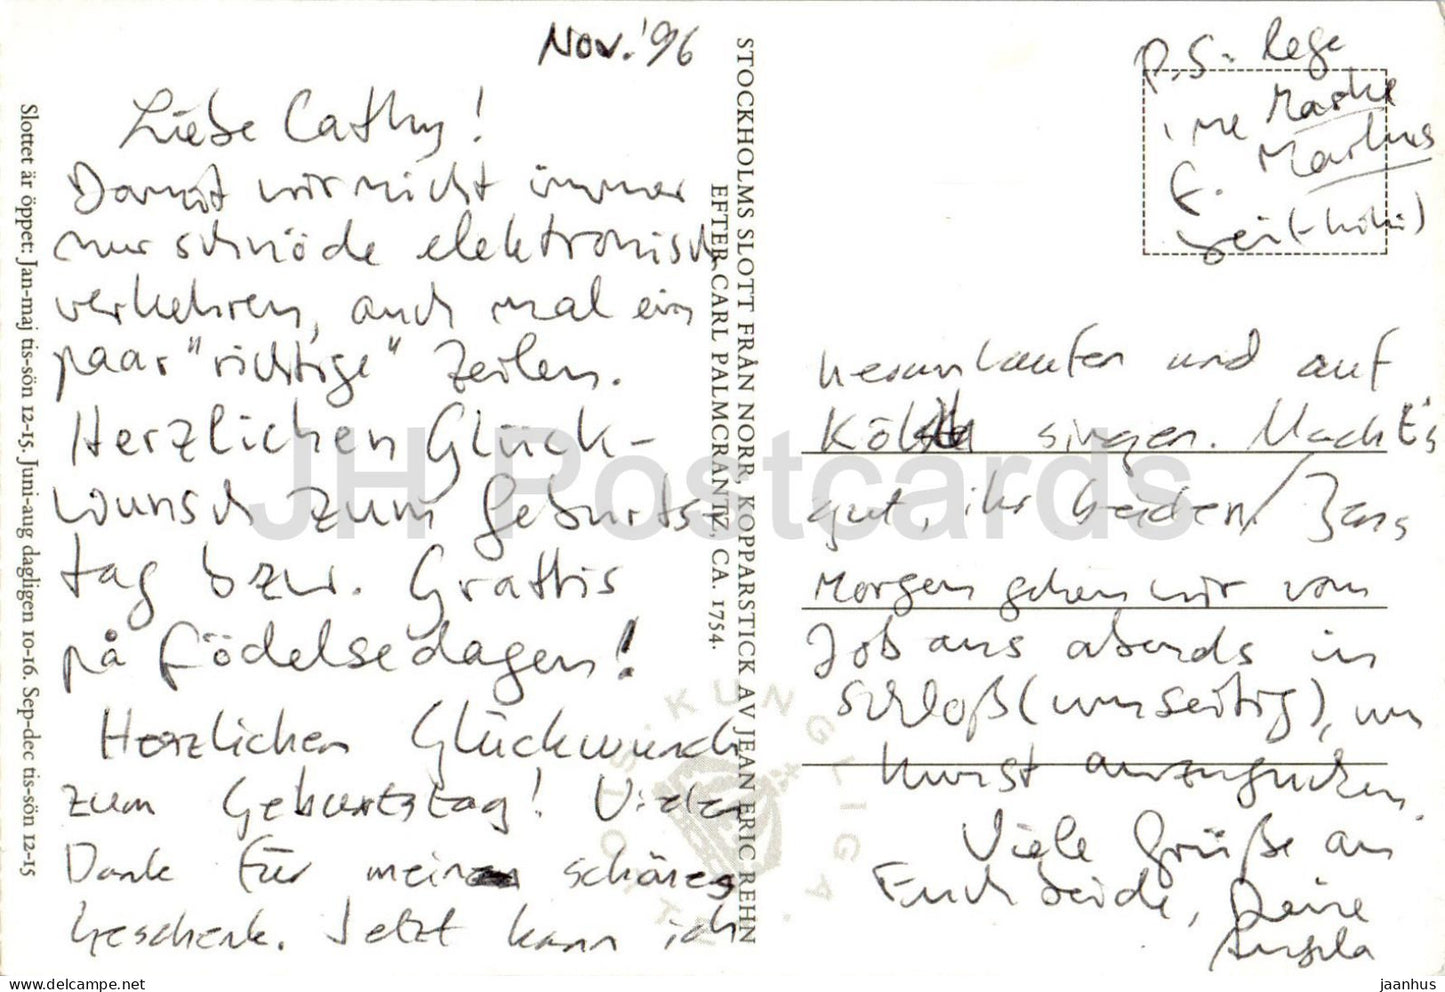 Nov. '96
Liebe Cathy!
Damit wir nicht immer
nur schnöde elektronisch
verkehren, auch mal ein
paar "richtige" Zeilen.
Herzlichen Glück-
wunsch zum Geburts-
tag bzw. Grattis
på födelsedagen!
Herzlichen Glückwunsch
zum Geburtstag! Vielen
Dank für mein schönes
Geschenk. Jetzt kann ich
P.S. Lege
ine Marke
f. Markus
bei (-hihi)
herumlaufen und auf
singen. Macht's
gut, ihr beiden!
Morgen gehen wir vom
Job aus abends in
Schloß (umseitig), um
Kunst anzugucken.
Viele Grüße an
Euch beide, Deine
Angela
STOCKHOLMS SLOTT FRÅN NORR, KOPPARSTICK AV JEAN ERIC REHN
EFTER CARL PALMCRANTZ, CA. 1754.
Slottet är öppet: Jan-maj tis-sön 12-15. Juni-aug dagligen 10-16. Sep-dec tis-sön 12-15
KUNGLIGA
JH Postcards
delcampe.net
jaanhus